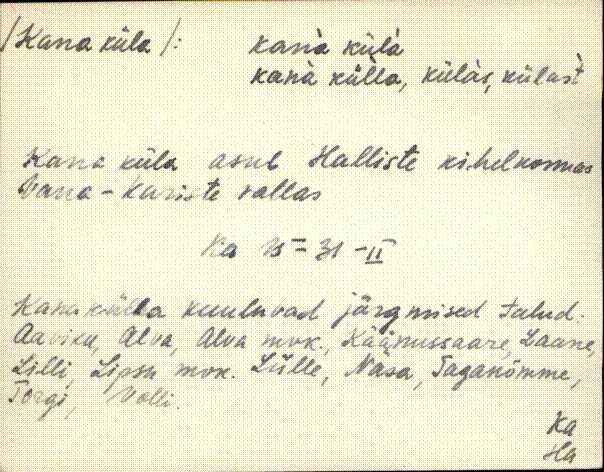 /Kana küla/: kanà külà
kanà külla, külàs, külàst
Kana küla asub Halliste kihelkonnas
Vana-Kariste vallas
Ka
Kana külla kuuluvad järgmised talud:
Aaviku, Alva, Alva mok., Käänussaare, Laane,
Lilli, Lipsu mok. Lülle, Näsa, Taganõmme,
Torgi, Volli.
Ka
Ha